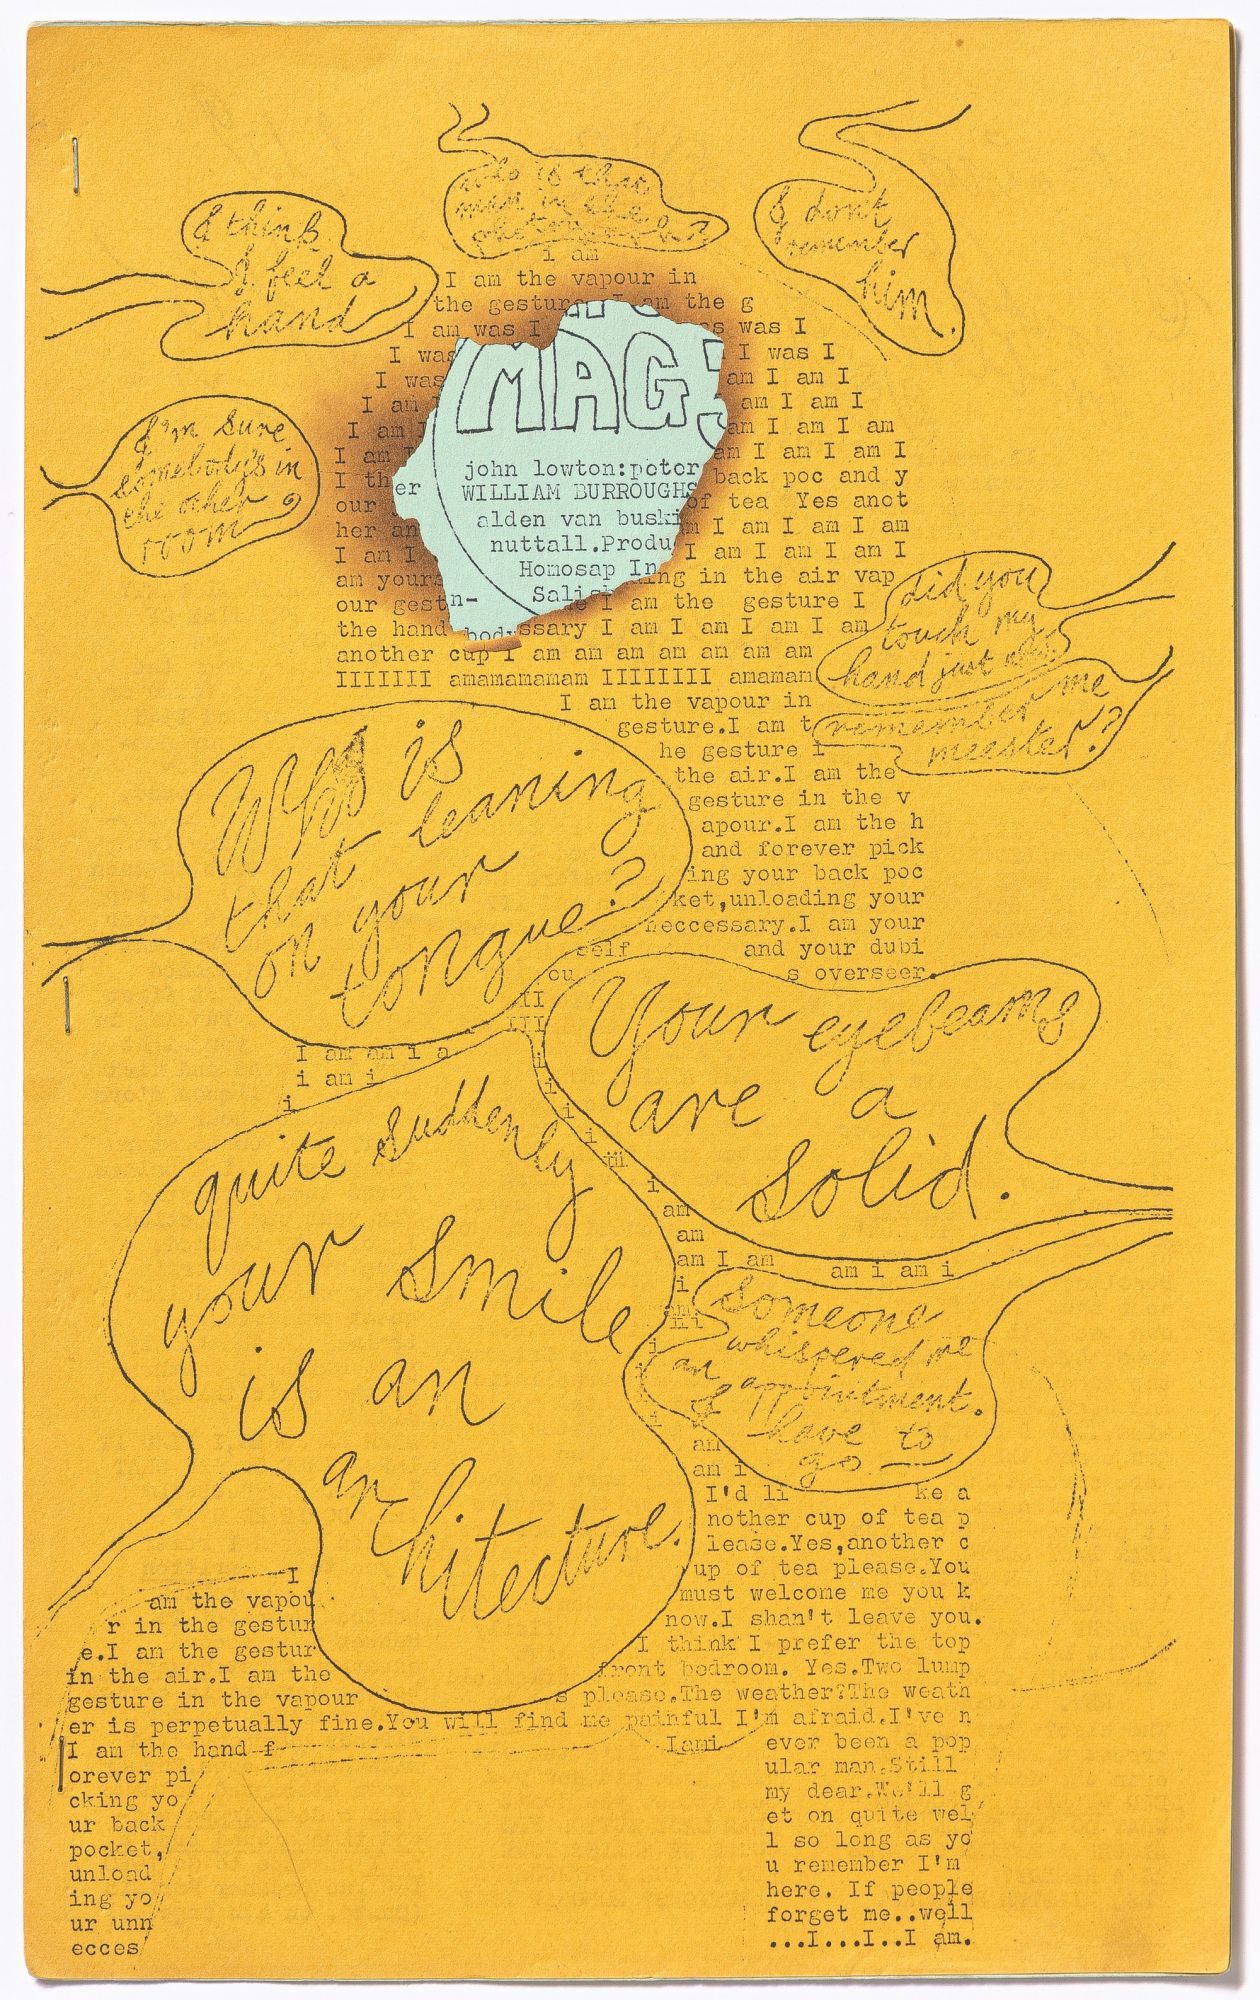 who is that
man in the
photograph?
I think
I feel a
hand
I don't
remember
him.
I'm sure
somebody's in
the other
room
i am
I am the vapour in
the gesture I am the g
I am was I as was I
I was I was I
I was am I am I
I am am I am I
I am I am I am I am
I am I am I am I am I
I th er back poc and y
our of tea Yes anot
her an m I am I am I am
I am I I am I am I am I
am yours ing in the air vap
our gest n- I am the gesture I
the hand body ssary I am I am I am I am
another cup I am am am am am am am
IIIIIII amamamamam IIIIIIII amamam
MAG
john lowton:peter
WILLIAM BURROUGHS
alden van buski
nuttall.Produ
Homosap In
Salis
did you
touch my
hand just
remember me
meester?
I am the vapour in
gesture.I am t
he gesture i
the air.I am the
gesture in the v
apour.I am the h
and forever pick
ing your back poc
ket,unloading your
neccessary.I am your
self and your dubi
ou s overseer.
II
III
Who is
that leaning
on your
tongue?
Your eyebeams
are a
solid.
I am am i a
i am i
i
i
i
i
i
iii
i
am
am
am I am am i ami
i
quite suddenly
your smile
is an
architecture.
Someone
whispered me
an appointment.
I have to
go
am
am i
I'd li ke a
nother cup of tea p
lease.Yes,another c
up of tea please.You
must welcome me you k
now.I shan't leave you.
I think I prefer the top
front bedroom. Yes.Two lump
s please.The weather?The weath
I
am the vapou
r in the gestur
e.I am the gestur
in the air.I am the
gesture in the vapour
er is perpetually fine.You will find me painful I'm afraid.I've n
I am the hand f Iami ever been a pop
orever pi ular man.Still
cking yo my dear.We'll g
ur back et on quite wel
pocket, l so long as yo
unload u remember I'm
ing yo here. If people
ur unn forget me..well
ecces ...I...I..I am.